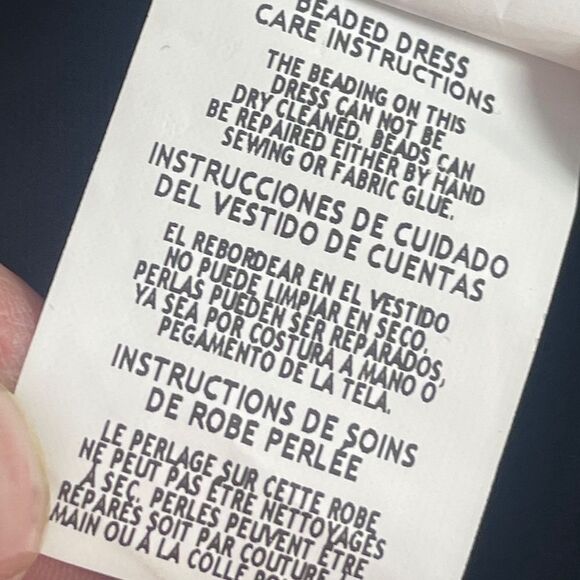 BEADED DRESS
CARE INSTRUCTIONS
THE BEADING ON THIS
DRESS CAN NOT BE
DRY CLEANED. BEADS CAN
BE REPAIRED EITHER BY HAND
SEWING OR FABRIC GLUE.
INSTRUCCIONES DE CUIDADO
DEL VESTIDO DE CUENTAS
EL REBORDEAR EN EL VESTIDO
NO PUEDE LIMPIAR EN SECO.
PERLAS PUEDEN SER REPARADOS,
YA SEA POR COSTURA A MANO O
PEGAMENTO DE LA TELA.
INSTRUCTIONS DE SOINS
DE ROBE PERLÉE
LE PERLAGE SUR CETTE ROBE
NE PEUT PAS ÊTRE NETTOYAGES
À SEC. PERLES PEUVENT ÊTRE
RÉPARÉS SOIT PAR COUTURE
MAIN OU À LA COLLE